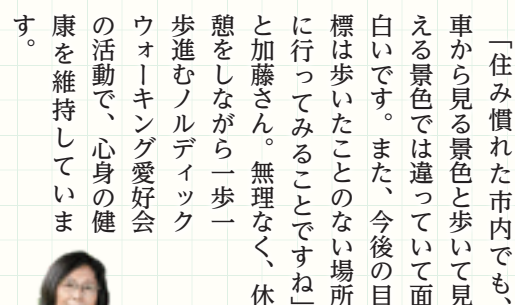 「住み慣れた市内でも、
車から見る景色と歩いて見
える景色では違っていて面
白いです。また、今後の目
標は歩いたことのない場所
に行ってみることですね」
と加藤さん。無理なく、休
憩をしながら一歩一
歩進むノルディック
ウォーキング愛好会
の活動で、心身の健
康を維持していま
す。